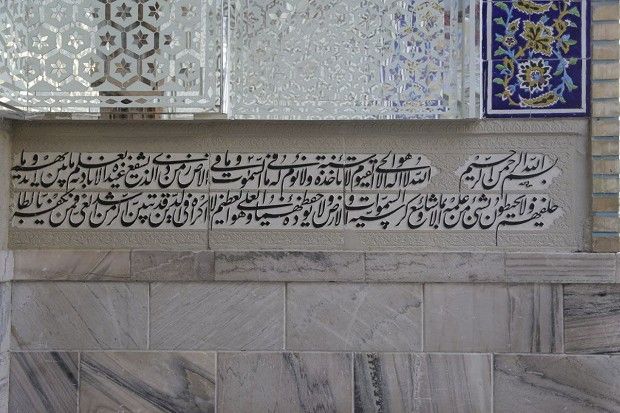 بسم الله الرحمن الرحیم الله لا اله الا هو الحی القیوم لا تاخذه سنة ولا نوم له ما فی السموات وما فی الارض من ذا الذی یشفع عنده الا باذنه یعلم ما بین ایدیهم وما
خلفهم ولا یحیطون بشیء من علمه الا بما شاء وسع کرسیه السموات والارض ولا یؤده حفظهما وهو العلی العظیم لا اکراه فی الدین قد تبین الرشد من الغی فمن یکفر بالطا